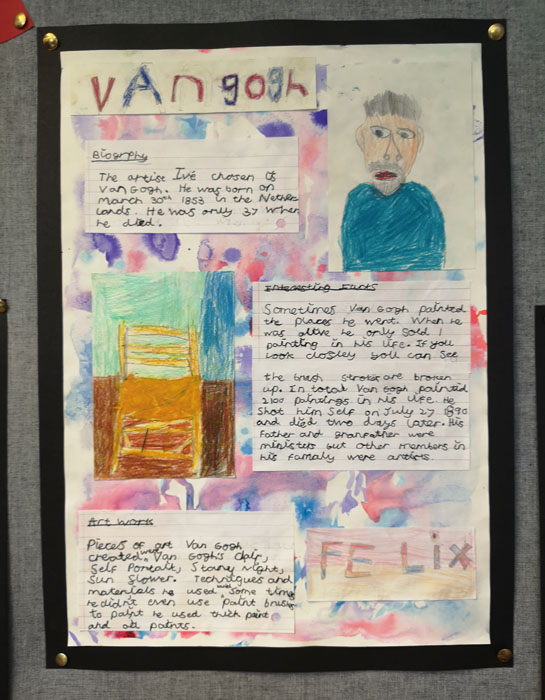 VAn gogh
Biography
The artist I've chosen is
Van Gogh. He was born on
March 30th 1853 in the Nether
lands. He was only 37 when
he died.
Interesting Facts
Sometimes Van Gogh painted
the places he went. When he
was alive he only sold 1
painting in his life. If you
look closley you can see
the brush strokes are broken
up. In total Van Gogh painted
2100 paintings in his life. He
Shot him self on July 27 1890
and died two days later. His
Father and granfather were
ministers but other members in
his Famaly were artists.
Art Work
Pieces of art Van Gogh
created were Van Gogh's chair,
Self Portait, Starry night,
Sun Slower. Techniques and
materials he used were some time
he didn't even use paint brush
to paint he used thick paint
and oil paints.
FELix